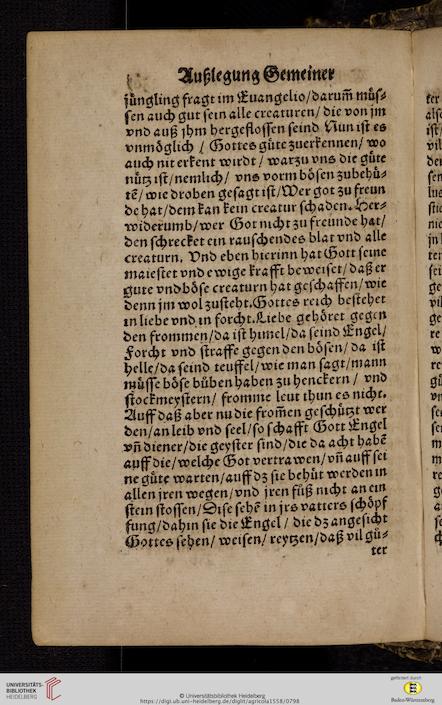 Außlegung Gemeiner
jüngling fragt im Euangelio/darum̃ müs⸗
sen auch gut sein alle creaturen/ die von jm
vnd auß jhm hergeflossen seind Nun ist es
vnmöglich / Gottes güte zuerkennen/ wo
auch nit erkent wirdt / warzu vns die güte
nütz ist/nemlich/ vns vorm bösen zubehü⸗
tẽ/ wie droben gesagt ist/Wer got zu freun
de hat/dem kan kein creatur schaden. Her⸗
widerumb/wer Got nicht zu freunde hat/
den schrecket ein rauschendes blat vnd alle
creaturn. Vnd eben hierinn hat Gott seine
maiestet vnd ewige krafft beweiset/ daß er
gute vnd böse creaturn hat geschaffen/ wie
denn jm wol zusteht. Gottes reich bestehet
in liebe vnd in forcht. Liebe gehöret gegen
den frommen/da ist himel/da seind Engel/
Forcht vnd straffe gegen den bösen/ da ist
helle/da seind teuffel/ wie man sagt/mann
müsse böse büben haben zu henckern / vnd
stockmeystern/ fromme leut thun es nicht.
Auff daß aber nu die from̃en geschützt wer
den/an leib vnd seel/so schafft Gott Engel
vñ diener/die geyster sind/die da acht habẽ
auff die/welche Got vertrawen/vñ auff sei
ne güte warten/auff dz sie behüt werden in
allen jren wegen/vnd jren füß nicht an ein
stein stossen/Dise sehẽ in jrs vatters schöpf
fung/dahin sie die Engel / die dz angesicht
Gottes sehen/ weisen/ reytzen/daß vil gü⸗
ter
UNIVERSITÄTS-
BIBLIOTHEK
HEIDELBERG
© Universitätsbibliothek Heidelberg
https://digi.ub.uni-heidelberg.de/diglit/agricola1558/0798
gefördert durch
Baden-Württemberg